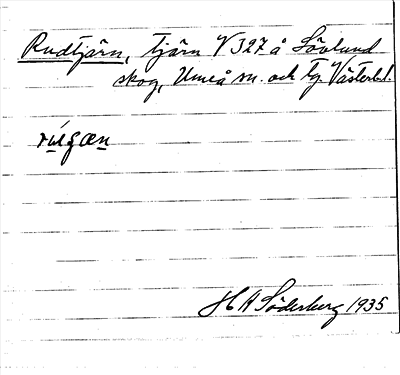 Rudtjärn, tjärn V 327 å Lövlund
skog, Umeå sn. och tg. Västerb.l.
H A Söderberg 1935